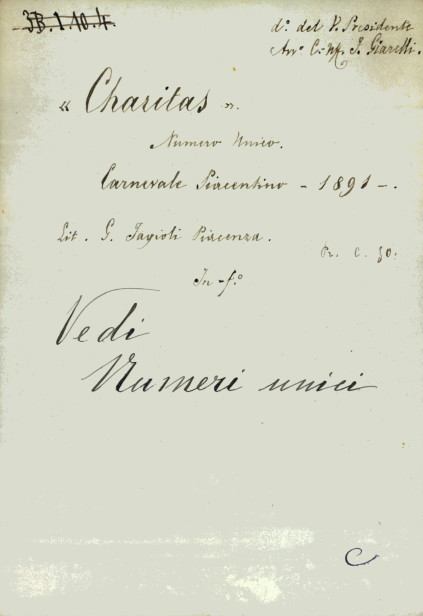 3B.1.10.4.
d.º del V. Presidente
Avv.º C. F. Giarelli.
« Charitas ».
Numero Unico.
Carnevale Piacentino - 1891 -.
Lit. G. Tagioli Piacenza.
Pr. C. 50.
In-f.º
Vedi
Numeri unici
C